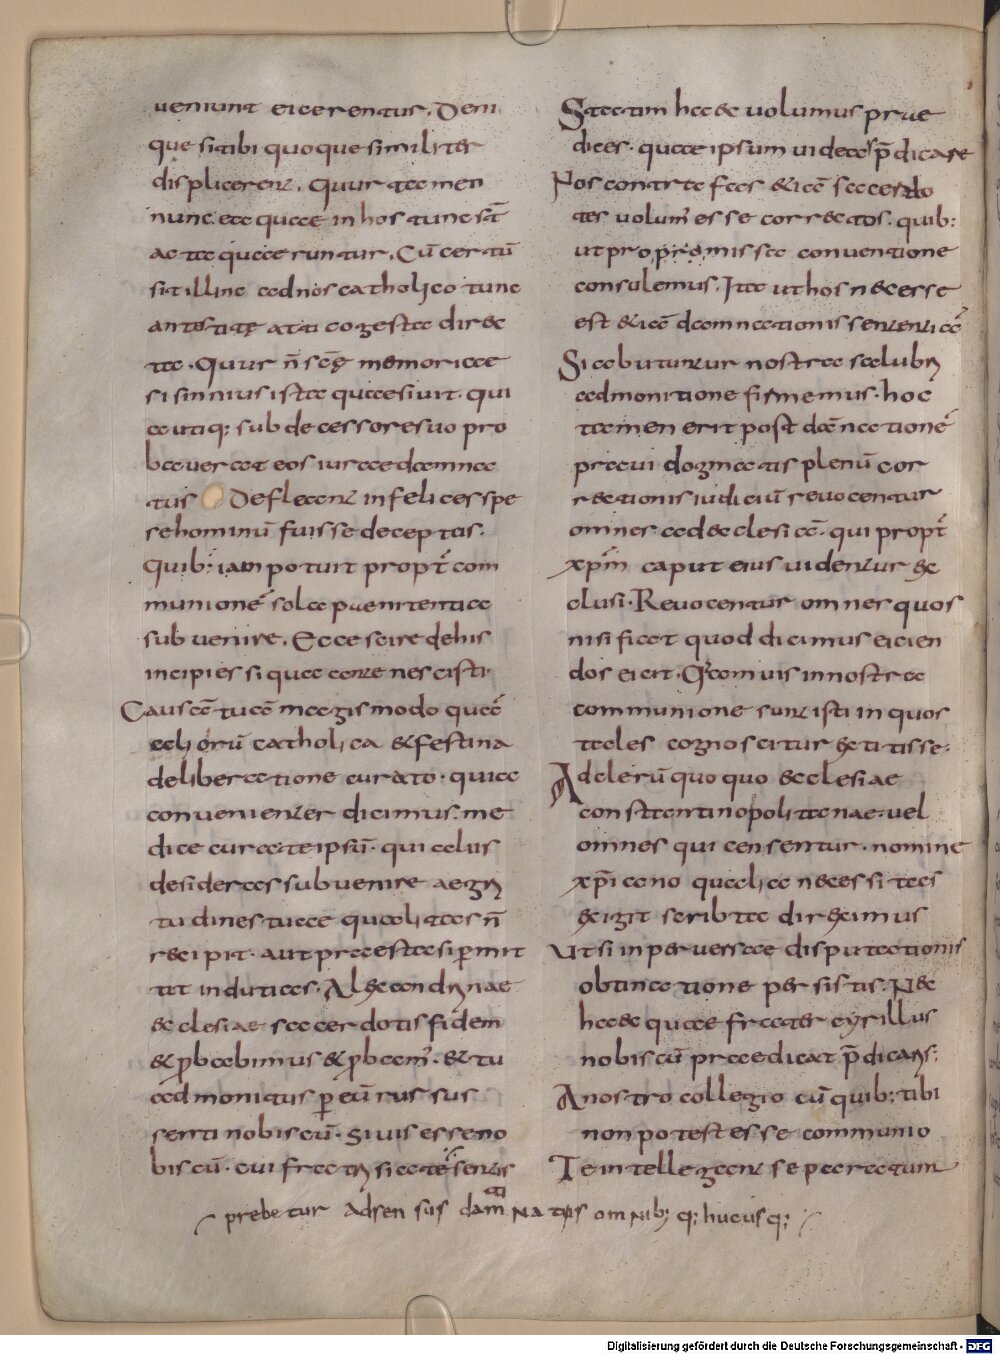 ueniunt eicerentur. Deni
que si tibi quoque similiter
displicerent. Quur tamen
nunc ea quae in hos tunc st̄
acta quaeruntur. Cū certū
sit illinc ad nos catholico tunc
antestite atti co gesta direc
ta. Quur n̄ scē memoriae
sisinnius ista quaesiuit. qui
cautiq; sub decessore suo pro
bauerat eos iure damna
tus Defleant infelices spe
se hominū fuisse deceptas.
Quib: iam potuit propt̄ com
munionē sola paenitentia
subuenire. Ecce scire de his
incipies si qua ante nescisti.
Causā tuā magis modo quā
aliorū catholica & festina
deliberatione curato. quia
conuenienter dicimus. me
dice cura te ipsū. qui aliis
desideras subuenire aegri
tudines tuae qualitas n̄
recipit. aut praesta si p̄mit
tit indutias. Alexandrinae
ecclesiae sacerdotis fidem
& pbabimus & pbam̄. & tu
admonitus p eū rursus
senti nobiscū. Si uis esse no
biscū. cui fratri si a te sentis
Statim haec uolumus prae
dices. quae ipsum uideas p̄dicare
Nos contra fas etiā sacerdo
tes uolum̄ esse correctos. quib:
ut pro promissa conuentione
consulemus. Ita ut hos necesse
est etiā damnationis sententiā
Si abutuntur nostra salubri
admonitione firmemus. hoc
tamen erit post dānationē
praui dogmatis plenū cor
rectionis iudiciū reuocentur
omnes ad ecclesiā. qui propt̄
xpm̄ caput eius uidentur ex
clusi. Reuocentur omnes quos
nisi fiat quod dicimus eicien
dos eicit. Quamuis in nostra
communione sunt isti in quos
tales cognoscitur extitisse.
Ad clerū quoquo ecclesiae
constantinopolitanae. uel
omnes qui censentur. nomine
xpiano qualia necessitas
exigit scribta direximus
Ut si in peruersae disputationis
obtinatione persistis. Nec
haec quae frater cyrillus
nobiscū praedicat p̄dicans:
A nostro collegio cū quib: tibi
non potest esse communio
Te intellegant separatum
prebetur adsensus damnatus omnib; q; hucusq;
Digitalisierung gefördert durch die Deutsche Forschungsgemeinschaft - DFG